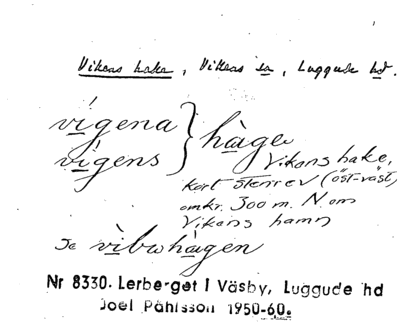 Vikens hake, Vikens sn, Luggude hd.
vígena } hàge
vígens
Vikens hake,
kort stenrev (öst-väst)
omkr. 300 m. N om
Vikens hamn
Se vìbwhàgen
Nr 8330. Lerberget i Väsby, Luggude hd
Joel Påhlsson 1950-60.